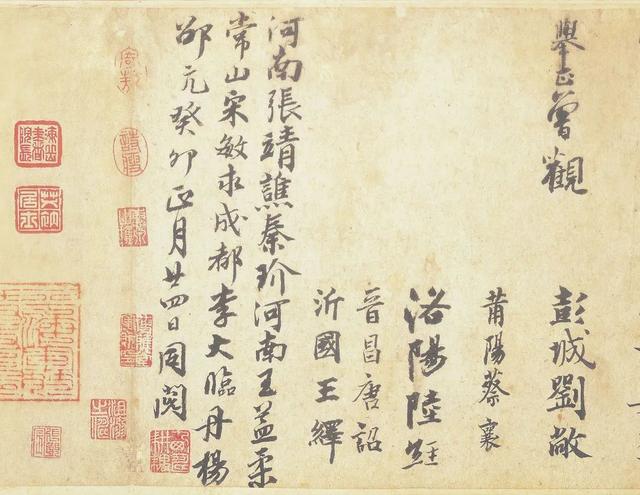 舉正曾觀
彭城劉敞
莆陽蔡襄
洛陽陸經
晉昌唐詔
沂國王繹
河南張靖譙秦玠河南王益柔
常山宋敏求成都李大臨丹楊
邵亢癸卯正月廿四日同閱